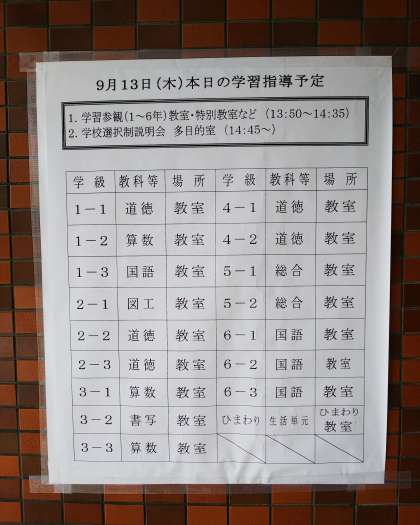 9月13日(木)本日の学習指導予定
1. 学習参観(1～6年)教室・特別教室など (13:50～14:35)
2. 学校選択制説明会 多目的室 (14:45～)
学 級 教科等 場 所 学 級 教科等 場 所
1－1 道徳 教室 4－1 道徳 教室
1－2 算数 教室 4－2 道徳 教室
1－3 国語 教室 5－1 総合 教室
2－1 図工 教室 5－2 総合 教室
2－2 道徳 教室 6－1 国語 教室
2－3 道徳 教室 6－2 国語 教室
3－1 算数 教室 6－3 国語 教室
3－2 書写 教室 ひまわり 生活単元 ひまわり教室
3－3 算数 教室